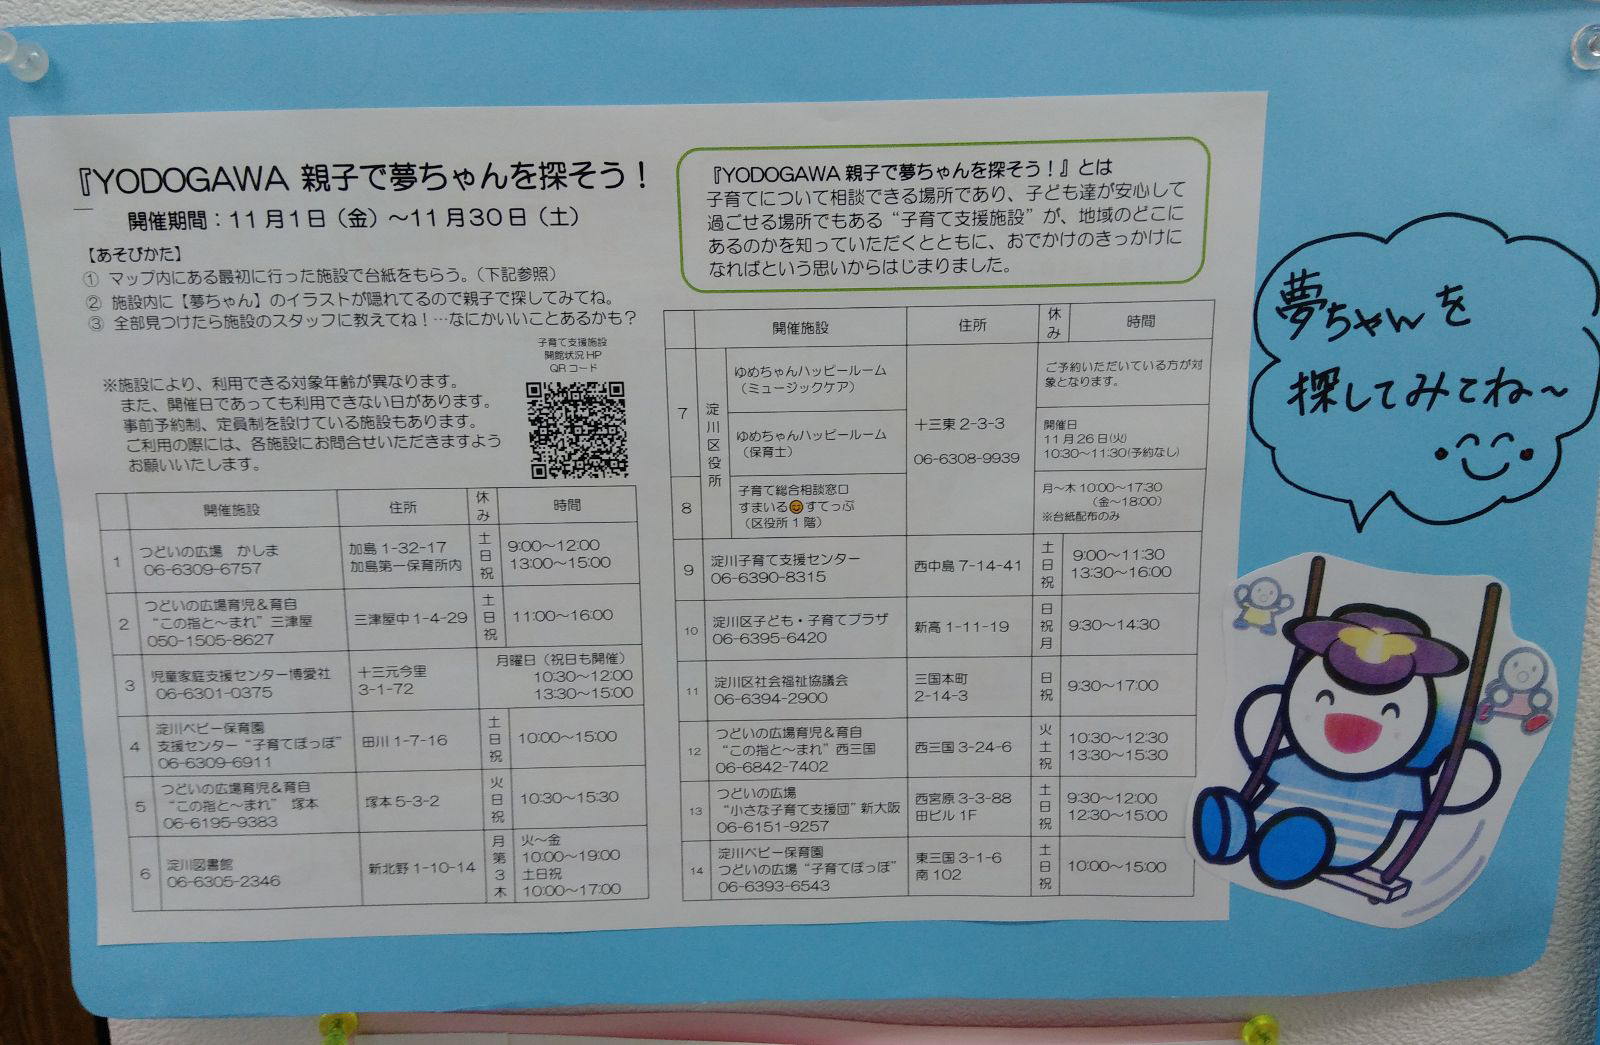 『YODOGAWA 親子で夢ちゃんを探そう！
開催期間：11月1日（金）～11月30日（土）
【あそびかた】
① マップ内にある最初に行った施設で台紙をもらう。（下記参照）
② 施設内に【夢ちゃん】のイラストが隠れてるので親子で探してみてね。
③ 全部見つけたら施設のスタッフに教えてね！…なにかいいことあるかも？
子育て支援施設
開館状況HP
QRコード
※施設により、利用できる対象年齢が異なります。
また、開催日であっても利用できない日があります。
事前予約制、定員制を設けている施設もあります。
ご利用の際には、各施設にお問合せいただきますよう
お願いいたします。
開催施設 住所 休み 時間
1 つどいの広場　かしま 加島 1-32-17 土日祝 9:00～12:00
06-6309-6757 加島第一保育所内 13:00～15:00
2 つどいの広場育児＆育自 三津屋中 1-4-29 土日祝 11:00～16:00
“この指と～まれ” 三津屋
050-1505-8627
3 児童家庭支援センター博愛社 十三元今里 月曜日（祝日も開催）
06-6301-0375 3-1-72 10:30～12:00
13:30～15:00
4 淀川ベビー保育園 田川 1-7-16 土日祝 10:00～15:00
支援センター“子育てぽっぽ”
06-6309-6911
5 つどいの広場育児＆育自 塚本 5-3-2 火日祝 10:30～15:30
“この指と～まれ” 塚本
06-6195-9383
6 淀川図書館 新北野 1-10-14 月第3木 火～金
06-6305-2346 10:00～19:00
土日祝
10:00～17:00
『YODOGAWA 親子で夢ちゃんを探そう！』とは
子育てについて相談できる場所であり、子ども達が安心して
過ごせる場所でもある“子育て支援施設”が、地域のどこに
あるのかを知っていただくとともに、おでかけのきっかけに
なればという思いからはじまりました。
開催施設 住所 休み 時間
7 淀川区役所 ゆめちゃんハッピールーム 十三東 2-3-3 ご予約いただいている方が対
（ミュージックケア） 06-6308-9939 象となります。
ゆめちゃんハッピールーム 開催日
（保育士） 11月26日(火)
10:30～11:30(予約なし)
8 子育て総合相談窓口 月～木 10:00～17:30
すまいる😊すてっぷ （金～18:00）
（区役所1階） ※台紙配布のみ
9 淀川子育て支援センター 西中島 7-14-41 土日祝 9:00～11:30
06-6390-8315 13:30～16:00
10 淀川区子ども・子育てプラザ 新高 1-11-19 日祝月 9:30～14:30
06-6395-6420
11 淀川区社会福祉協議会 三国本町 日祝 9:30～17:00
06-6394-2900 2-14-3
12 つどいの広場育児＆育自 西三国 3-24-6 火土祝 10:30～12:30
“この指と～まれ” 西三国 13:30～15:30
06-6842-7402
13 つどいの広場 西宮原 3-3-88 土日祝 9:30～12:00
“小さな子育て支援団” 新大阪 田ビル 1F 12:30～15:00
06-6151-9257
14 淀川ベビー保育園 東三国 3-1-6 土日祝 10:00～15:00
つどいの広場“子育てぽっぽ” 南 102
06-6393-6543
夢ちゃんを
探してみてね～